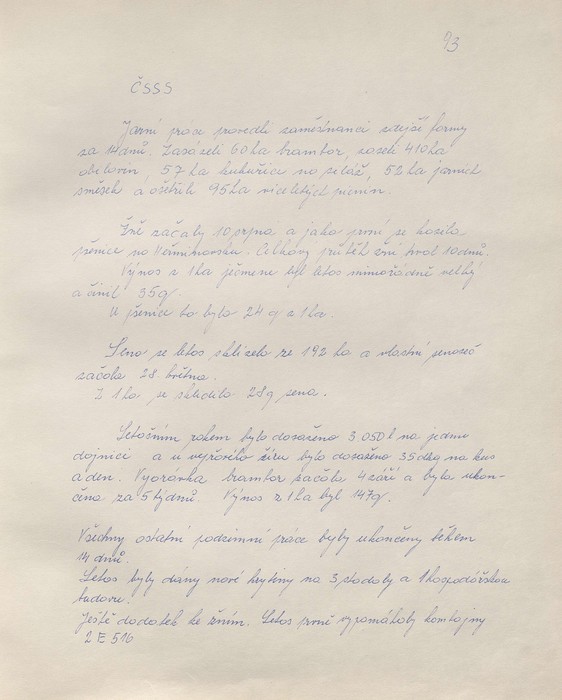 93
ČSSS
Jarní práce provedli zaměstnanci zdejší farmy
za 14 dnů. Zasázeli 60 ha brambor, zaseli 410 ha
obilovin, 57 ha kukuřice na siláž, 52 ha jarních
směsek a ošetřili 95 ha víceletých pícnin.
Žně začaly 10. srpna a jako první se kosila
pšenice na Heřminovsku. Celkový průběh žní trval 10 dnů.
Výnos z 1 ha ječmene byl letos mimořádně velký
a činil 35 q.
U pšenice to bylo 24 q z 1 ha.
Sena se letos sklízelo ze 192 ha a vlastní senoseč
začala 28. května.
Z 1 ha se sklidilo 28 q sena.
Letošním rokem bylo dosaženo 3 050 l na jednu
dojnici a u vepřového žíru bylo dosaženo 35 dkg na kus
a den. Vyorávka brambor začala 4 září a byla ukon-
čena za 5 týdnů. Výnos z 1 ha byl 147 q.
Všechny ostatní podzimní práce byly ukončeny během
14 dnů.
Letos byly dány nové krytiny na 3 stodoly a 1 hospodářskou
budovu.
Ještě dodatek ke žním. Letos prvně vypomáhaly kombajny
2 E 516